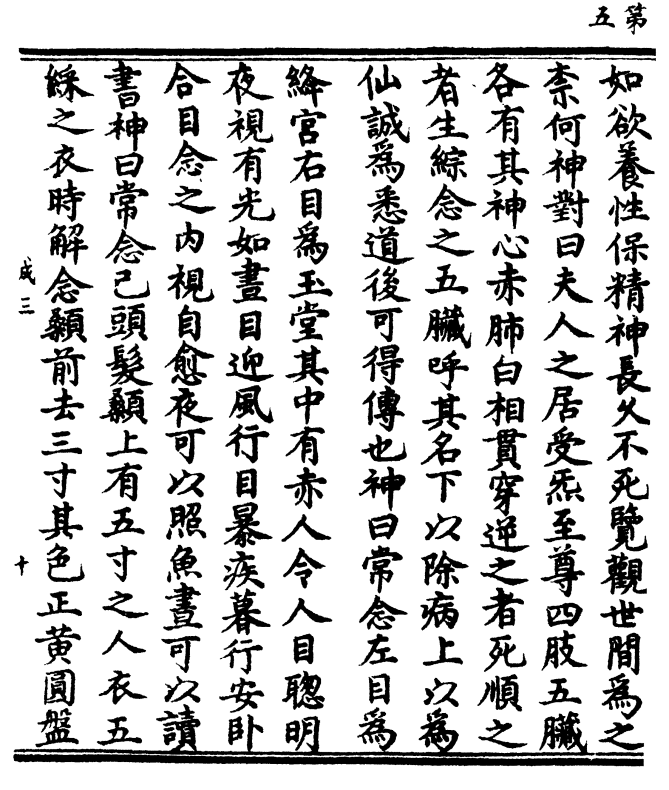 第五
如欲養性保精神長久不死覽觀世間為之
柰何神對曰夫人之居受炁至尊四肢五臟
各有其神心赤肺白相貫穿逆之者死順之
者生綜念之五臟呼其名下以除病上以為
仙誠為悉道後可得傳也神曰常念左目為
絳宮右目為玉堂其中有赤人令人目聰明
夜視有光如晝目迎風行目暴疾暮行安卧
合目念之内視自愈夜可以照魚晝可以讀
書神曰常念己頭髮顙上有五寸之人衣五
綵之衣時解念顙前去三寸其色正黄圓盤
成三
十